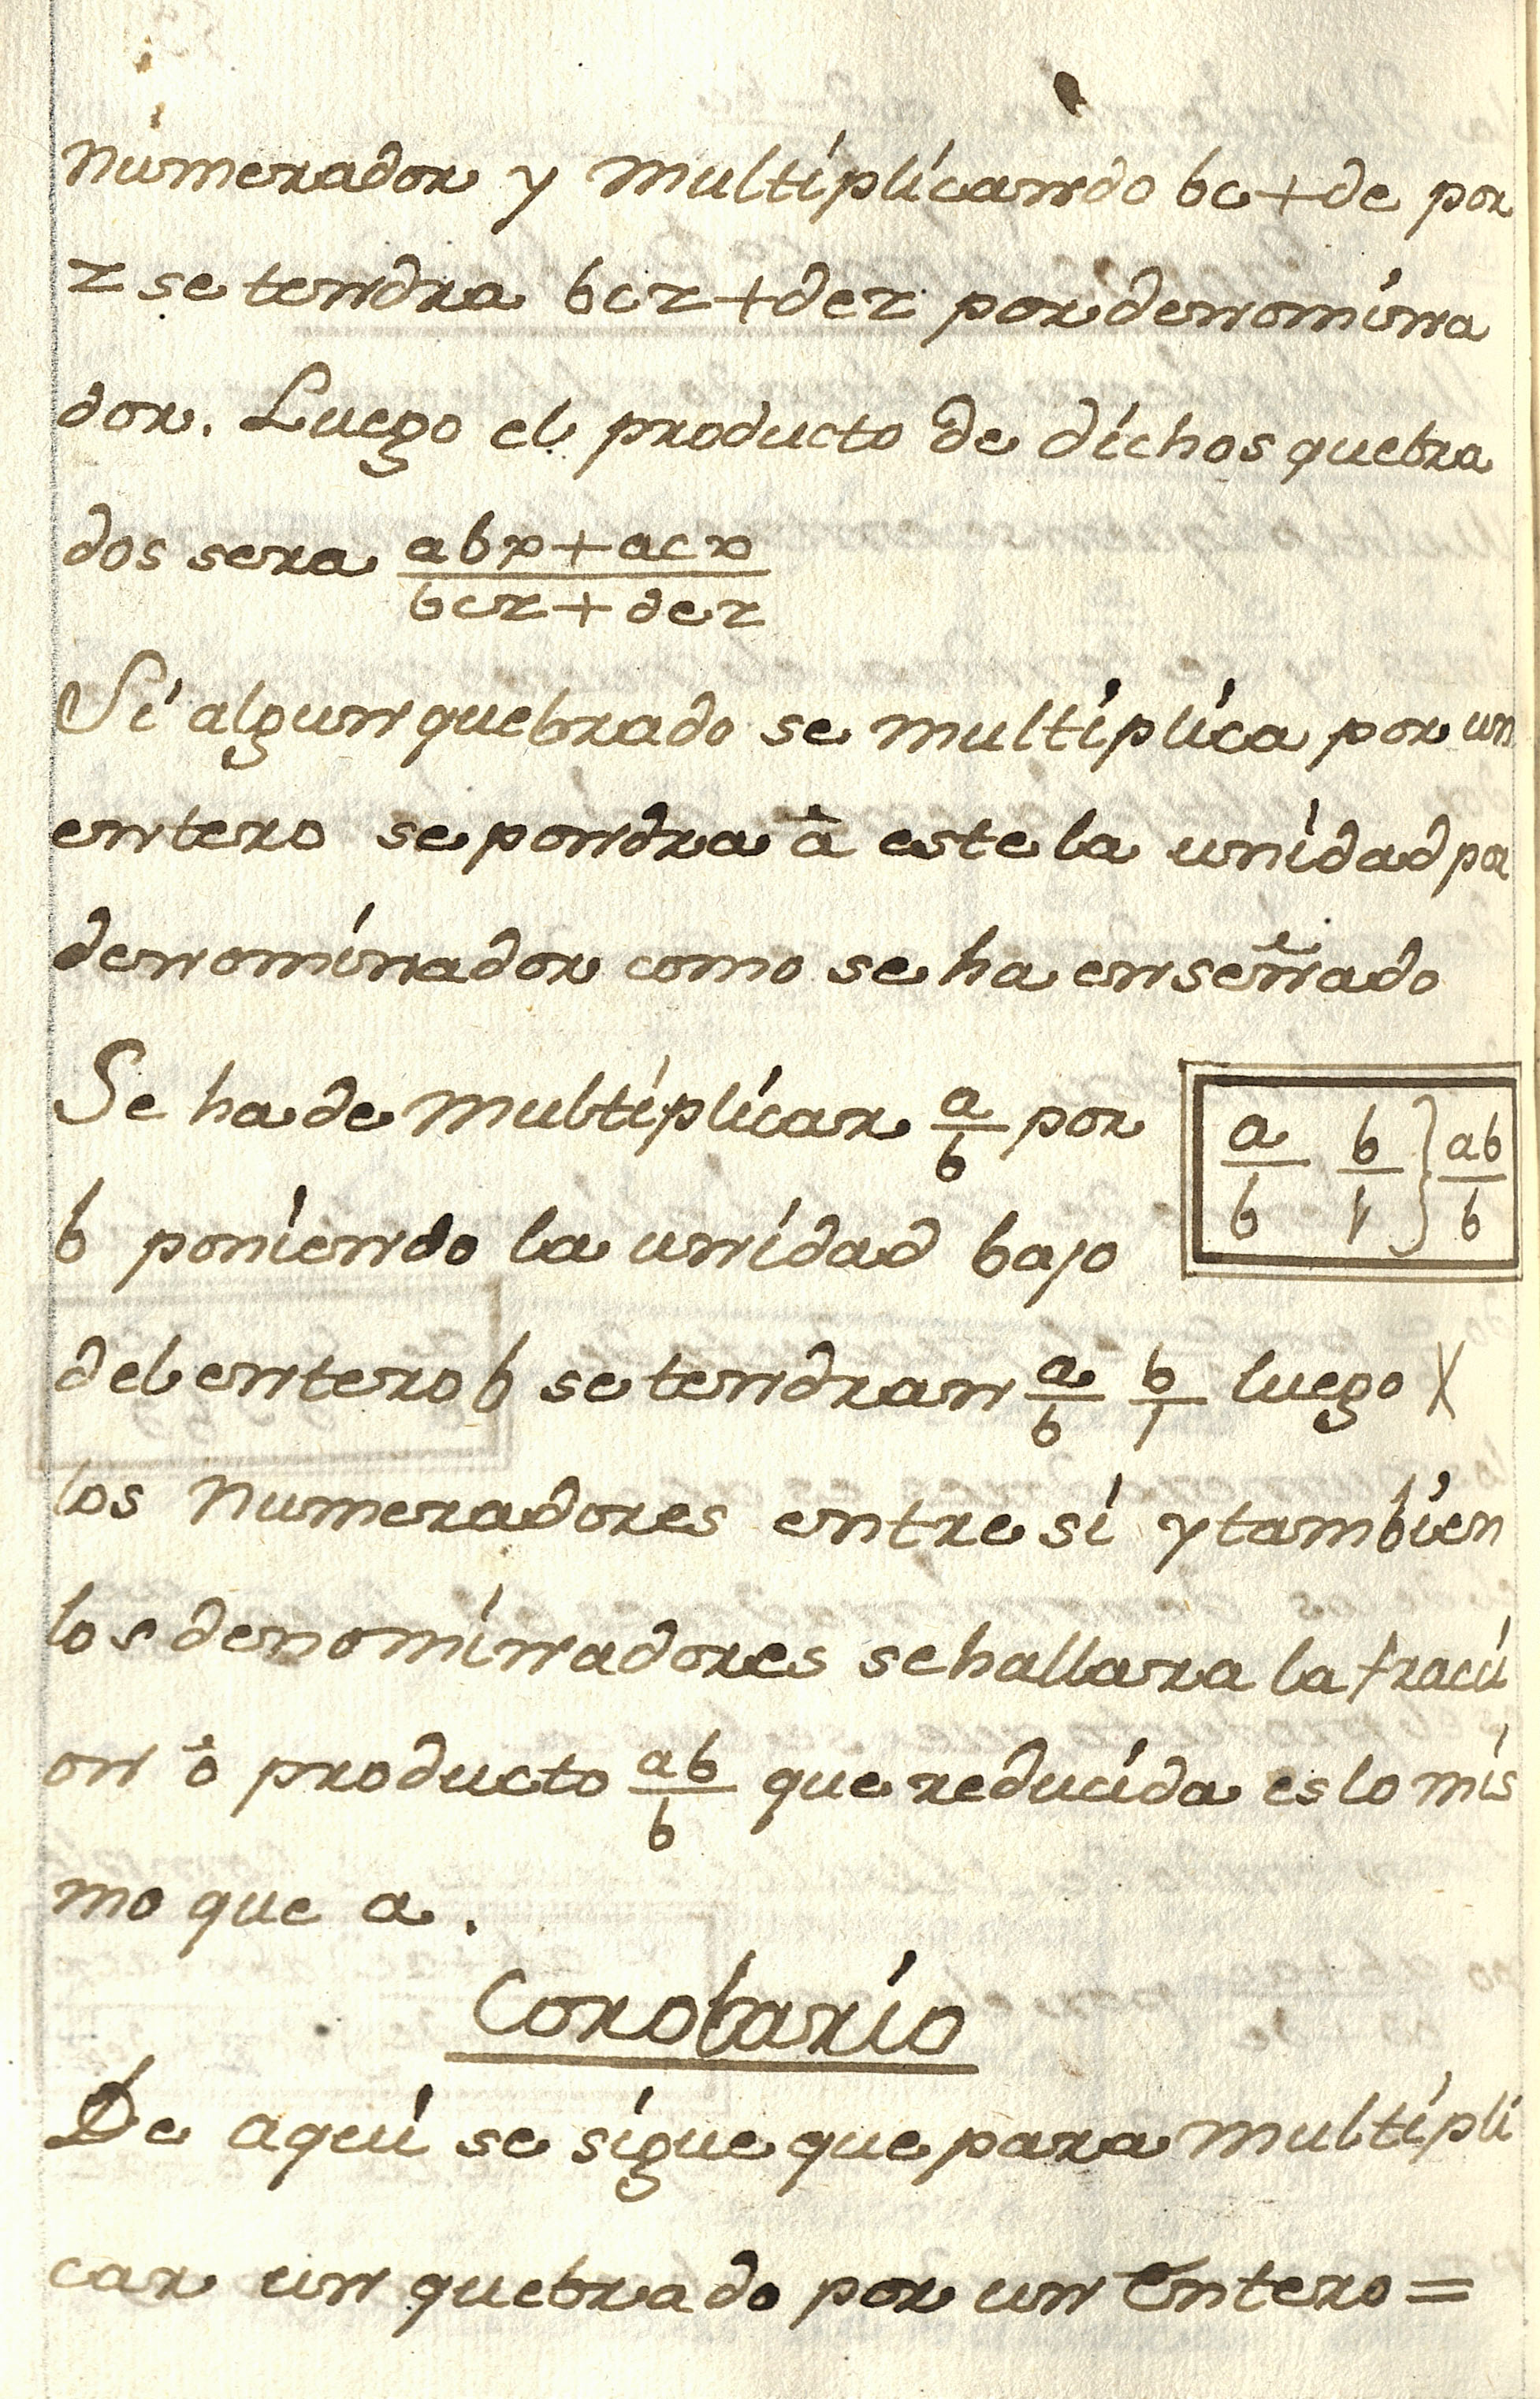 numerador y multiplicando bc+de por
z se tendra bcz+dez por denomina
dor. Luego el producto de dichos quebra
dos sera abx+acx
bcz+dez
Si algun quebrado se multiplica por un
entero se pondra à este la unidad por
denominador como se ha enseñado
Se ha de multiplicar a/b por
a/b b/1 } ab/b
b poniendo la unidad bajo
del entero b se tendran a/b b/1 luego X
los numeradores entre si y tambien
los denominadores se hallara la fracci
on ò producto ab/b que reducida es lo mis
mo que a.
Corolario
De aqui se sigue que para multipli
car un quebrado por un Entero=